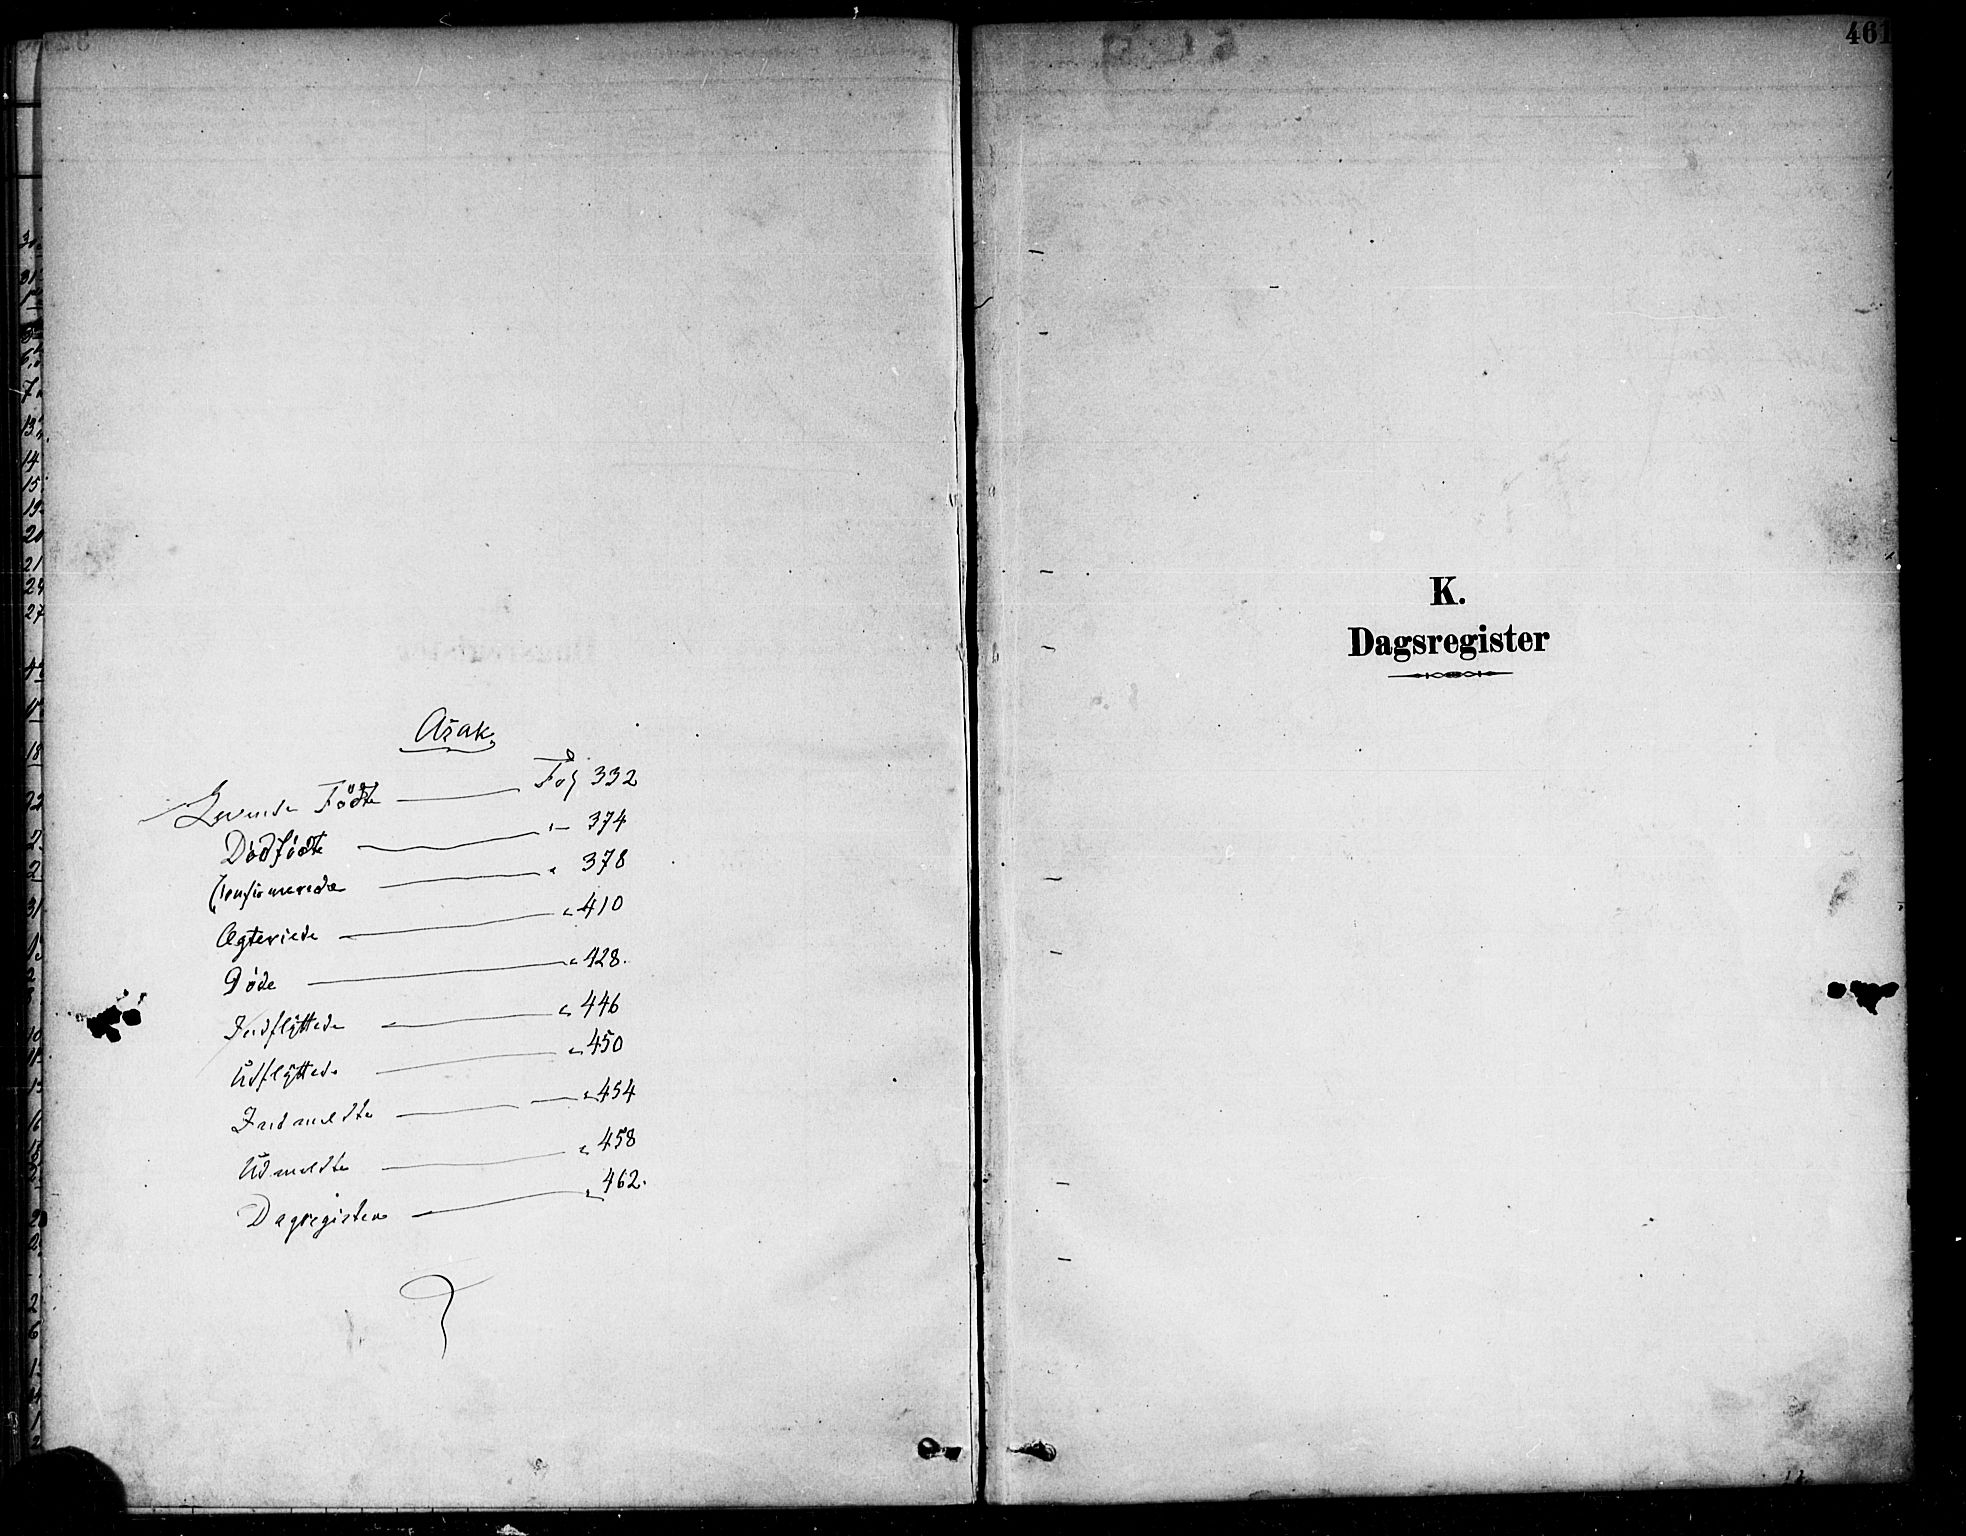 Asak
Levende Födte — Fol 332
Dødfødte — " 374
Confirmerede — " 378
Ægteviede — " 410
Døde — " 428.
Indflyttede — " 446
Udflyttede — " 450
Indmeldte — " 454
Udmeldte — " 458
Dagregister — " 462.
461
K.
Dagsregister